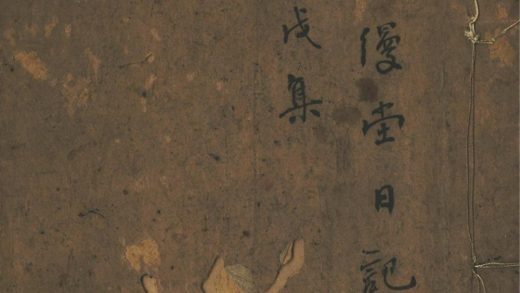 縵堂日記
戊集